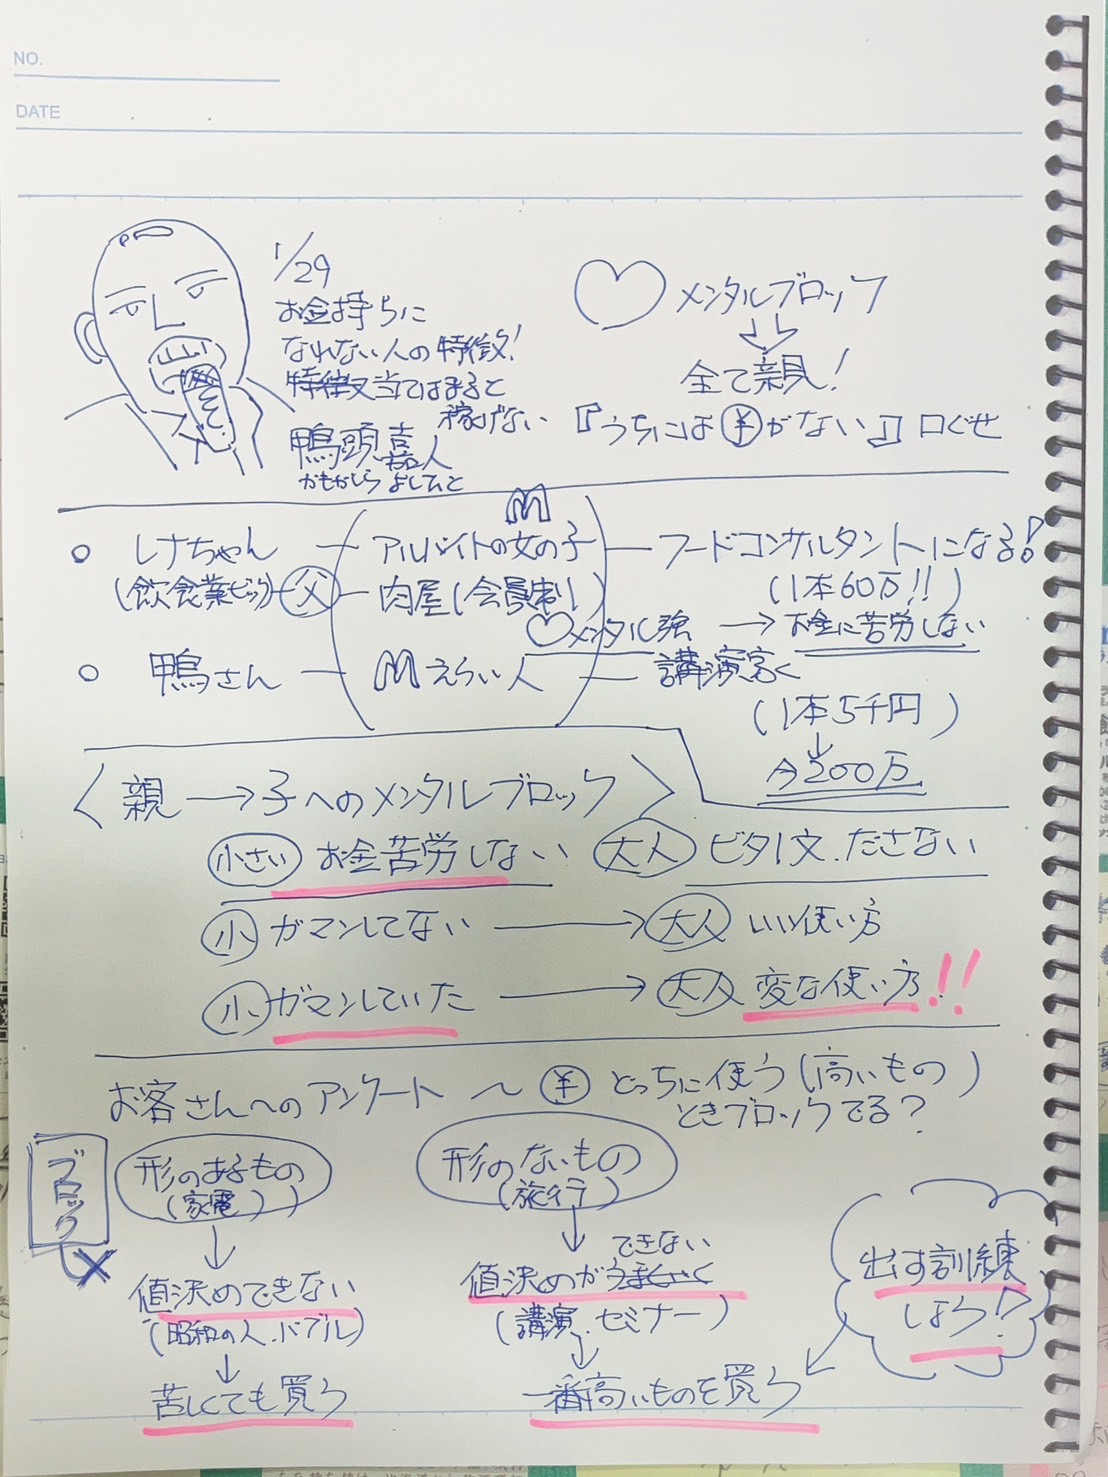 NO.
DATE
1/29
お金持ちに
なれない人の特徴!
特徴当てはまると
稼げない
鴨頭嘉人
かもがしら よしひと
♡メンタルブロック
全て親!
『うちには¥がない』口ぐせ
M
○ レナちゃん ー アルバイトの女の子 ー フードコンサルタントになる!
(飲食業ビック) 父 ー 肉屋(会員制) (1本60万!!)
♡メンタル強 → お金に苦労しない
○ 鴨さん ー Mえらい人 ー 講演家く
(1本5千円)
↓
今200万
〈親→子へのメンタルブロック〉
小さい お金苦労しない 大人 ビタ1文.ださない
小 ガマンしてない → 大人 いい使い方
小 ガマンしていた → 大人 変な使い方!!
お客さんへのアンケート 〜 ¥ どっちに使う(高いもの)
ときブロックでる?
ブロック
形のあるもの
(家電)
↓
値決めできない
(昭和の人.バブル)
↓
苦しくても買う
形のないもの
(旅行)
↓
できない
値決めが
(講演.セミナー)
↓
一番高いものを買う
出す訓練
しよう!